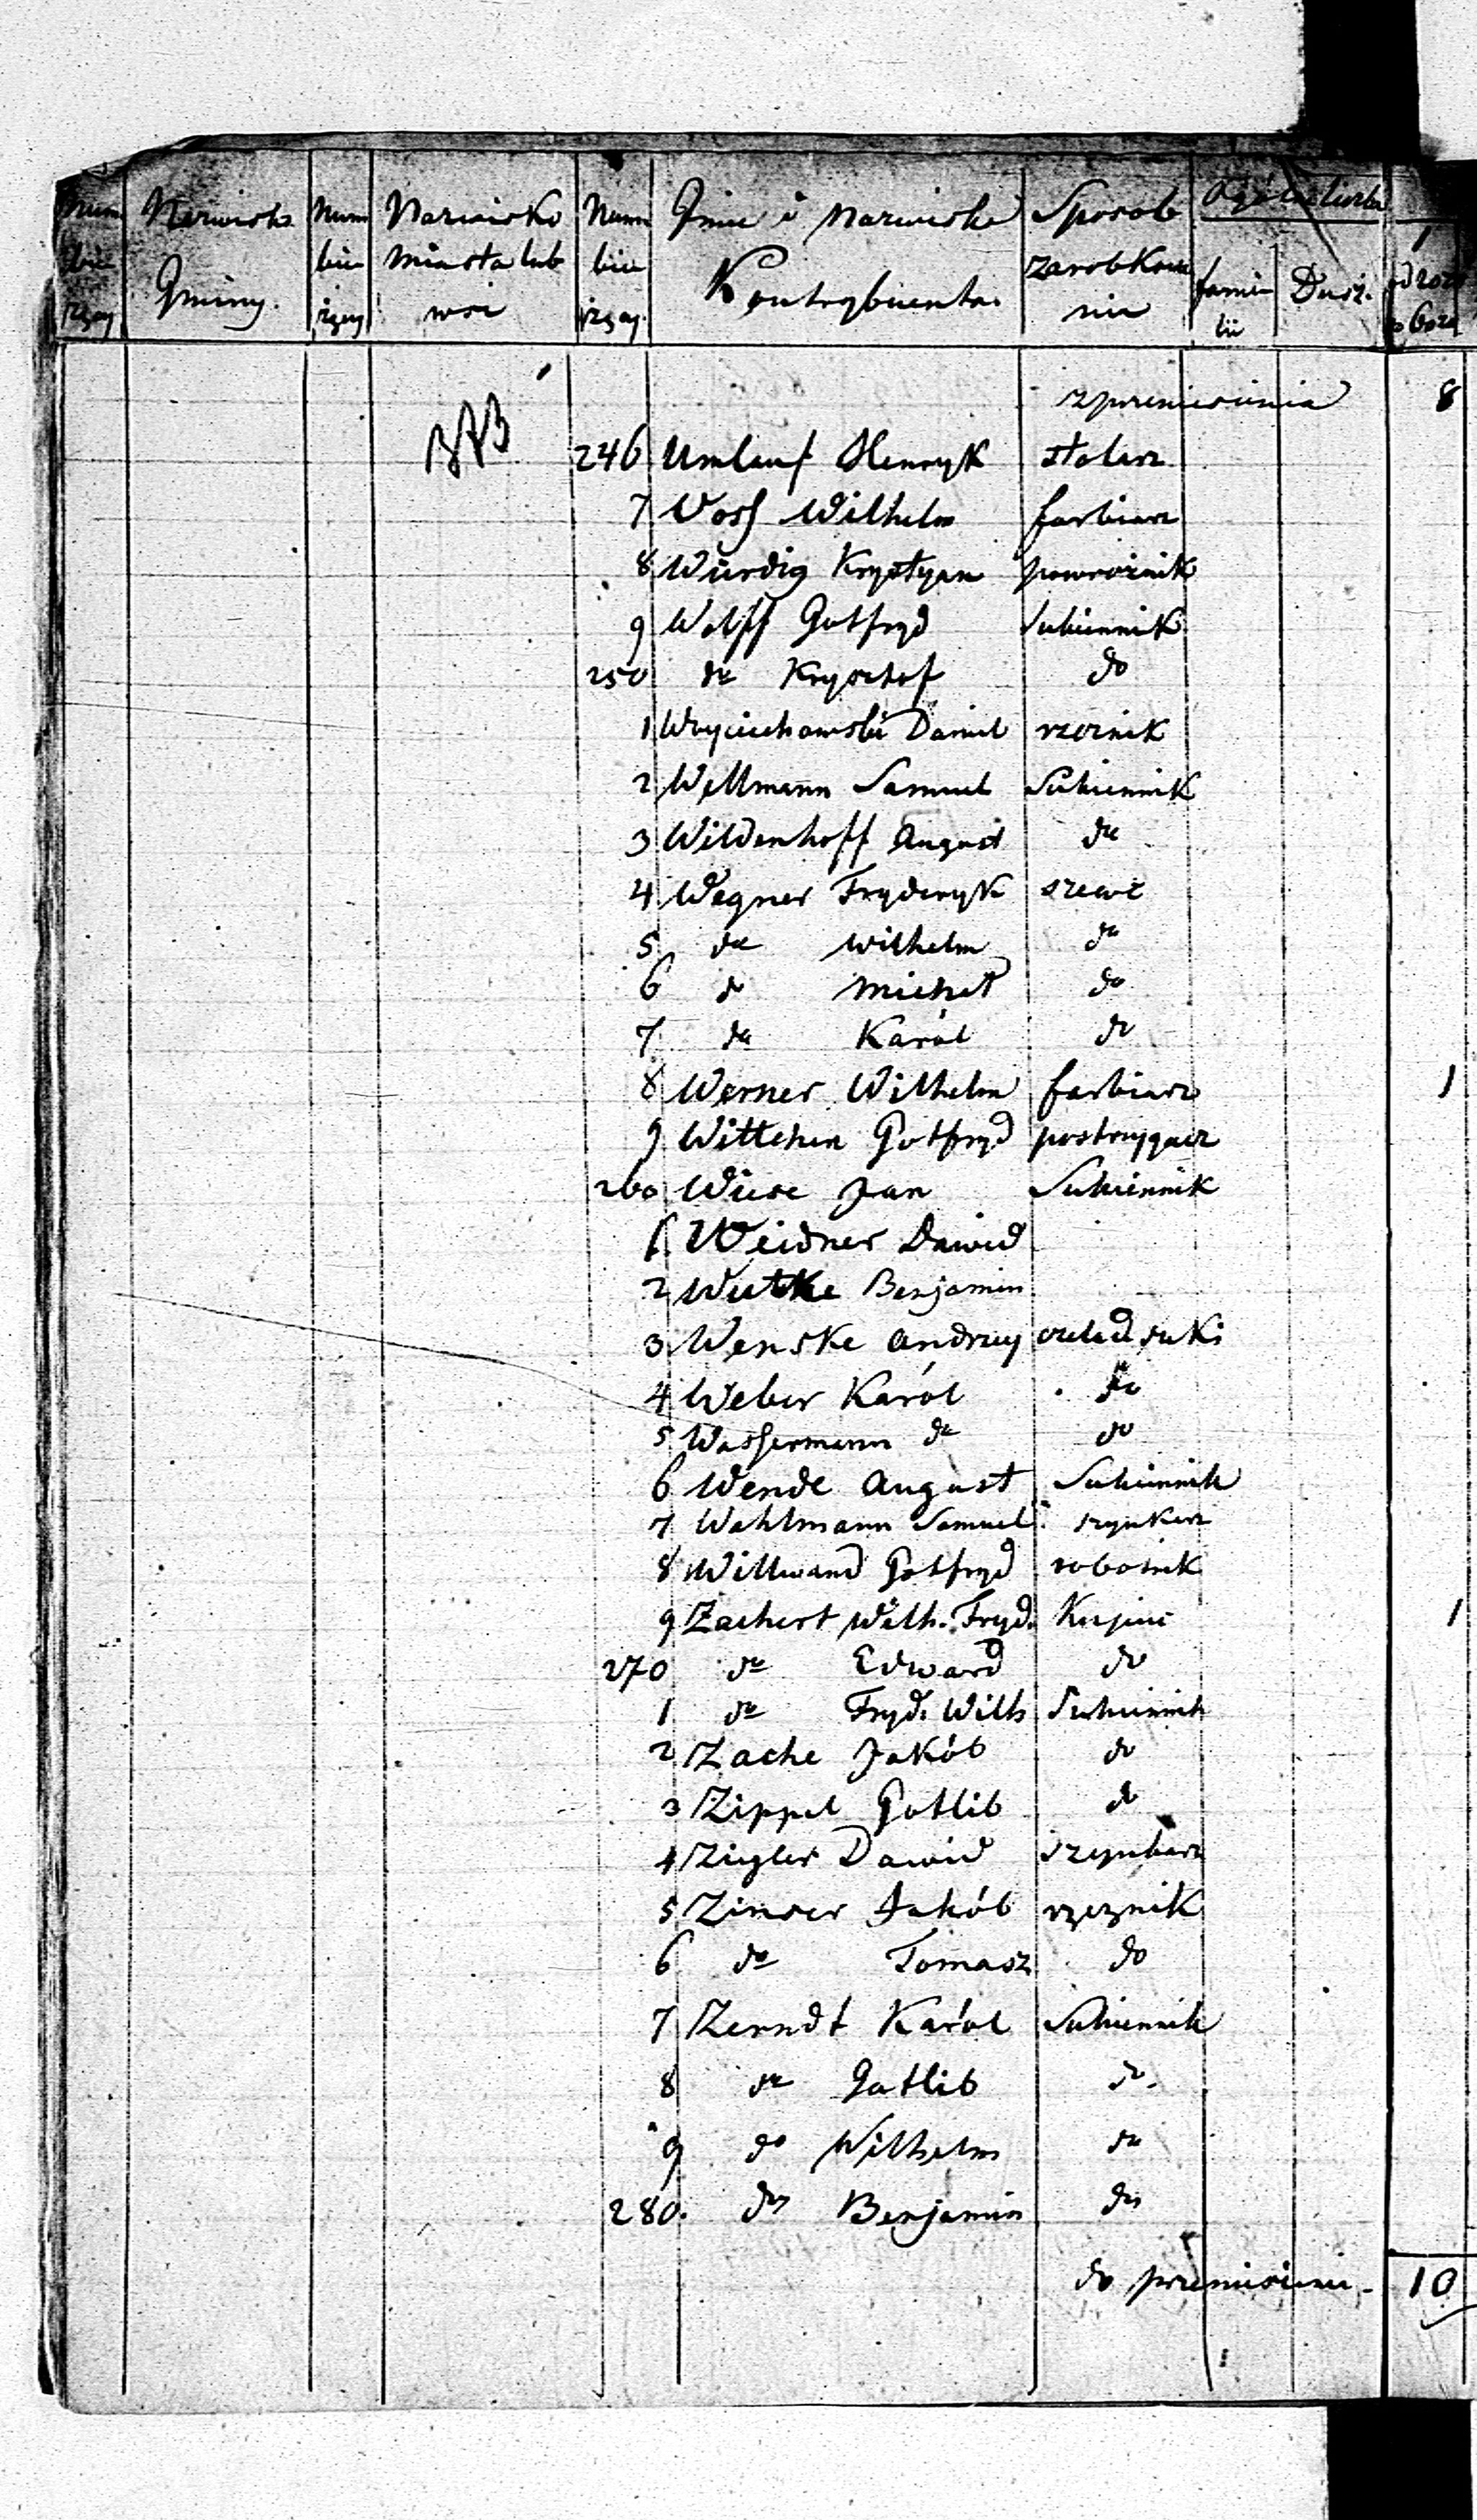 Num bie rzący Nazwisko Gminy. Num bie rzący Nazwisko miasta lub wsi Num bie rzący. Imie i Nazwisko Kontrybuenta Sposob zarobkowa nia Ogólna liczba familii Dusz. 1
z przeniesienia 8
246 Umlauf Henryk stolarz
7 Voss Wilhelm farbiarz
8 Würdig Krystyan powroźnik
9 Wolff Gotfryd Sukiennik
250 do Krysztof do
1 Woyciechowski Daniel rzeźnik
2 Wellmann Samuel Sukiennik
3 Wildenhoff August do
4 Wegner Fryderyk szewc
5 do Wilhelm do
6 do Michał do
7 do Karól do
8 Werner Wilhelm farbiarz 1
9 Wittchen Gotfryd postrzygacz
260 Wiese Jan Sukiennik
1. Weidner Dawid
2 Wutke Benjamin
3 Wenske Andrzey czelad. suki
4 Weber Karól do
5 Wassermann do do
6 Wende August Sukiennik
7 Wahlmann Samuel szynkarz
8 Willwand Gotfryd robotnik
9 Zachert Wilh. Fryd. Kupiec 1
270 do Edward do
1 do Fryd. Wilh Sukiennik
2 Zache Jakób do
3 Zippel Gotlib do
4 Zigler Dawid szynkarz
5 Zinser Jakób rzeznik
6 do Tomasz do
7 Zerndt Karól Sukiennik
8 do Gotlib do.
9 do Wilhelm do
280. do Benjamin do
do przeniesienia 10